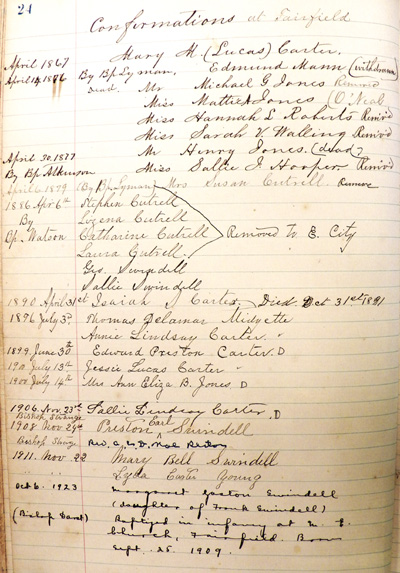 21
Confirmations at Fairfield
April 1867 Mary H. (Lucas) Carter.
April 14, 1876 By Bp Lyman, Edmund Mann (withdrawn)
dead. Mr Michael G Jones Remov'd
Miss Mattie Jones (O'Neal
Miss Hannah L Roberts Remov'd
Miss Sarah V. Walling Remov'd
April 30, 1877 Mr Henry Jones. (dead)
By Bp Atkinson Miss Sallie J Hooper Remov'd
April 6 1879 (By Bp Lyman) Mrs Susan Cutrell. Remove
1886 Apr 6th Stephen Cutrell
By Lovena Cutrell
Bp. Watson Catharine Cutrell Removed to E. City
Laura Cutrell.
Geo. Swindell
Sallie Swindell
1890 April 31st Isaiah Carter, Died Oct 31st 1891
1896 July 3d Thomas Delamar Midyette
Annie Lindsay Carter.
1899. June 30th Edward Preston Carter. D
1901 July 13th Jessie Lucas Carter
1900 July 14th Mrs Ann Eliza B. Jones. D
1906. Nov. 23rd Sallie Lindsay Carter. D
Bishop Strange
1908 Nov. 29th Preston Earl Swindell
Bishop Strange Rev.
1911. Nov. 22 Mary Bell Swindell
Lyda Carter Young
Oct 6. 1923 Margaret Gaston Swindell
(daughter of Frank Swindell)
(Bishop Darst) Baptized in infancy at M. E.
church, Fairfield. Born
Sept. 25. 1909.